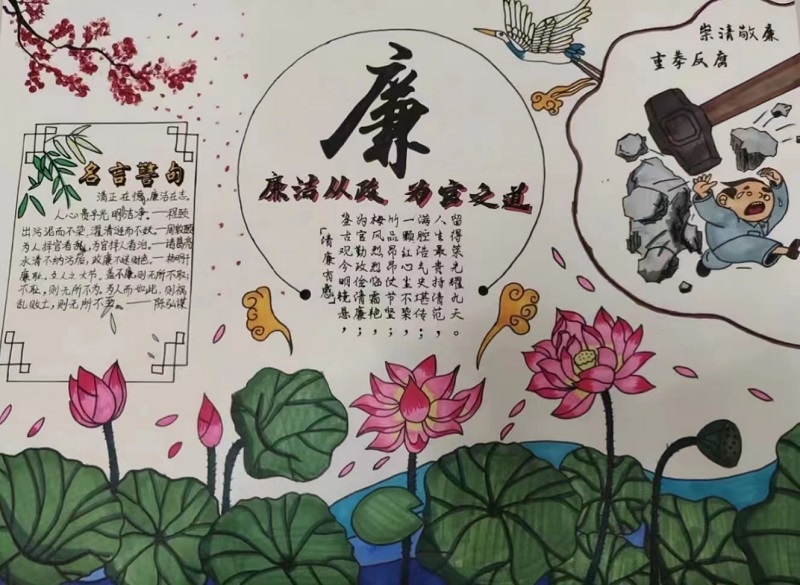 崇清敬廉
重拳反腐
廉
廉洁从政 为官之道
名言警句
清正在德,廉洁在志。
人心贵乎光明洁净。——程颐
出污泥而不染,濯清涟而不妖。—周敦颐
为人择官者乱,为官择人者治。—诸葛亮
水清不纳污垢,政廉不谋财色。
廉耻,立人之大节。盖不廉,则无所不取;
不耻,则无所不为。人而如此,则祸
乱败亡,则无所不至。——陈弘谋
「清廉有感」
鉴古观今明镜悬,
为官勤政俭清廉;
梅风烈烈临霜艳,
竹品昂昂仗节坚;
一颗红心尘不染,
满腔浩气史堪传;
人生最贵持清范,
留得荣光耀九天。